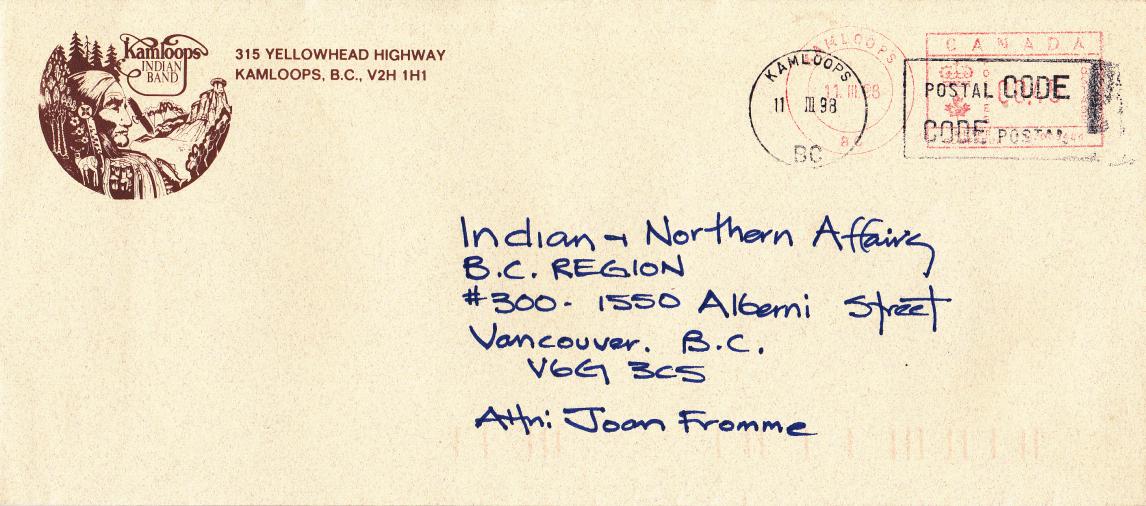 Kamloops
INDIAN
BAND
315 YELLOWHEAD HIGHWAY
KAMLOOPS, B.C., V2H 1H1
KAMLOOPS
11 III 98
BC
KAMLOOPS
11 III 98
CANADA
POSTAL CODE
CODE POSTAL
Indian + Northern Affairs
B.C. REGION
#300 - 1550 Alberni Street
Vancouver. B.C.
V6G 3C5
Attn: Joan Fromme